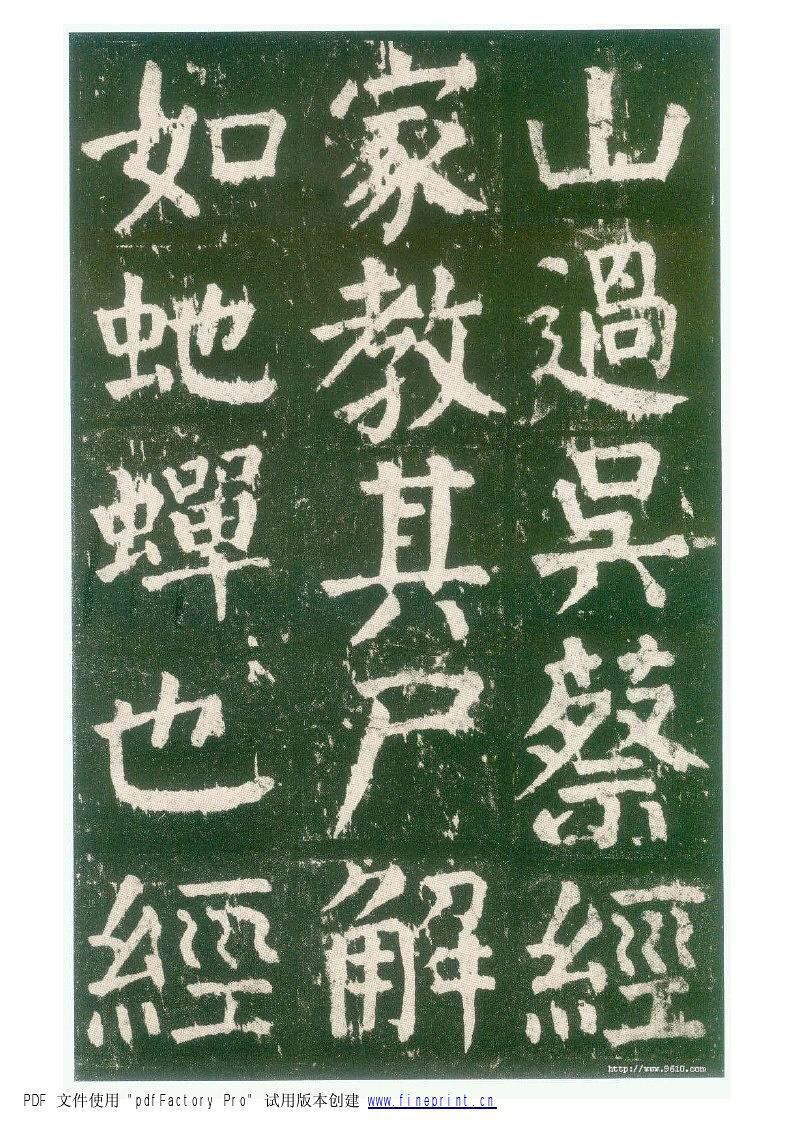 山過吳蔡經
家教其尸解
如虵蟬也經
http://www.9610.com
PDF 文件使用 "pdfFactory Pro" 试用版本创建 www.fineprint.cn